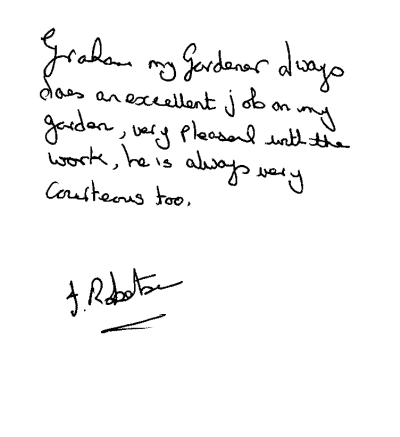 Graham my Gardener always
does an excellent job on my
garden, very pleased with the
work, he is always very
Courteous too.
J. Robertson